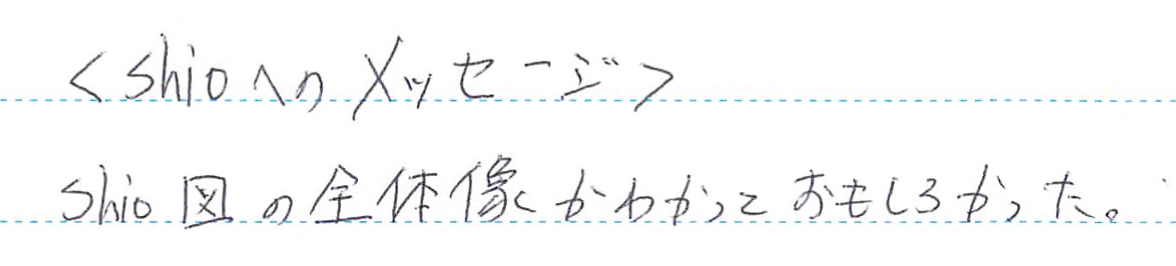 <shioへのメッセージ>
shio図の全体像がわかっておもしろかった。